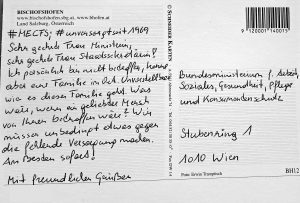 BISCHOFSHOFEN
www.bischofshofen.sbg.at, www.bhofen.at
Land Salzburg, Österreich
#MECFS; #unversorgtseit1969
Sehr geehrte Frau Ministerin,
sehr geehrte Frau Staatssekretärin!
Ich persönlich bin nicht betroffen, kenne
aber eine Familie in der Unvorstellbar
wie es dieser Familie geht. Was
wäre, wenn ein geliebter Mensch
von Ihnen betroffen wäre? Wir
müssen unbedingt etwas gegen
die fehlende Versorgung machen.
Am Besten sofort!
Mit freundlichen Grüßen
9 120012 140015
Bundesministerium f. Arbeit,
Soziales, Gesundheit, Pflege
und Konsumentenschutz
Stubenring 1
1010 Wien
Foto: Erwin Trampitsch
BH12